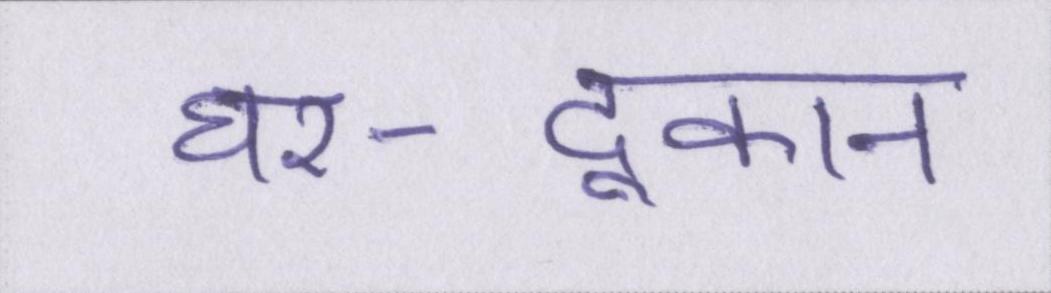 घर- दूकान